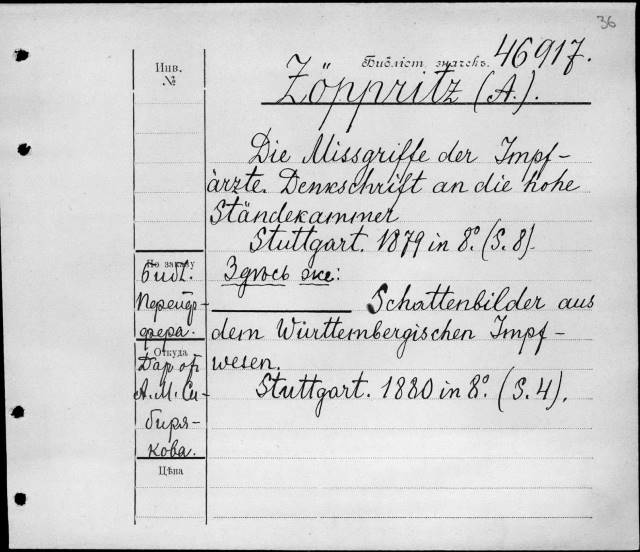 36
Инв.
№
Библіот. значекъ. 46917.
Zöppritz (A.).
Die Missgriffe der Impf-
ärzte. Denkschrift an die hohe
Ständekammer
Stuttgart. 1879 in 8º. (S. 8).
По заказу
Библ.
Перейд-
фера.
Здѣсь же:
Schattenbilder aus
dem Württembergischen Impf-
wesen.
Stuttgart. 1880 in 8º. (S. 4).
Откуда
Дар от
А.М. Си-
биря-
кова.
Цѣна